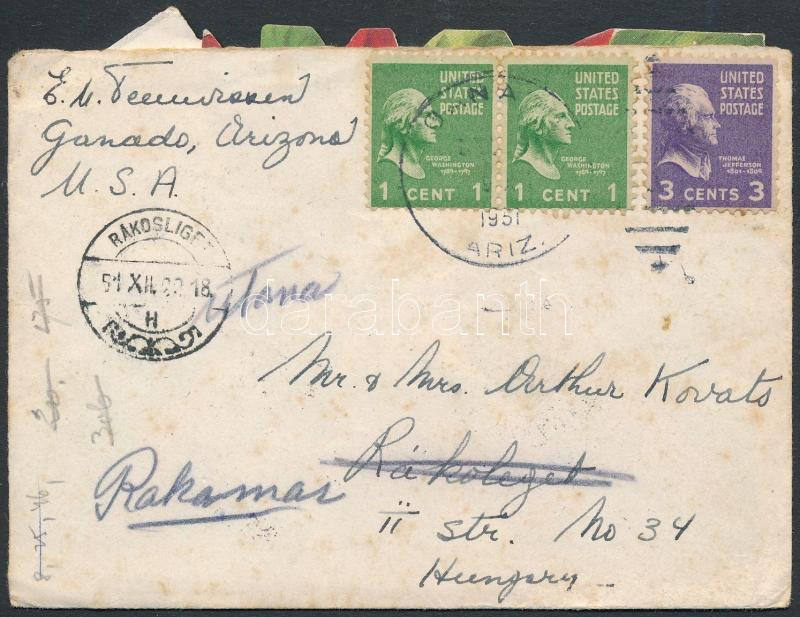 E. M. Teunissen
Ganado, Arizona
U. S. A.
UNITED STATES POSTAGE
GEORGE WASHINGTON
1789-1797
1 CENT 1
UNITED STATES POSTAGE
GEORGE WASHINGTON
1789-1797
1 CENT 1
UNITED STATES POSTAGE
THOMAS JEFFERSON
1801-1809
3 CENTS 3
1951
ARIZ.
RÁKOSLIGET
51 XII. 18
H
darabanth
Mr. & Mrs. Arthur Kovats
Rákoleget
Rakamaz
II str. No 34
Hungary